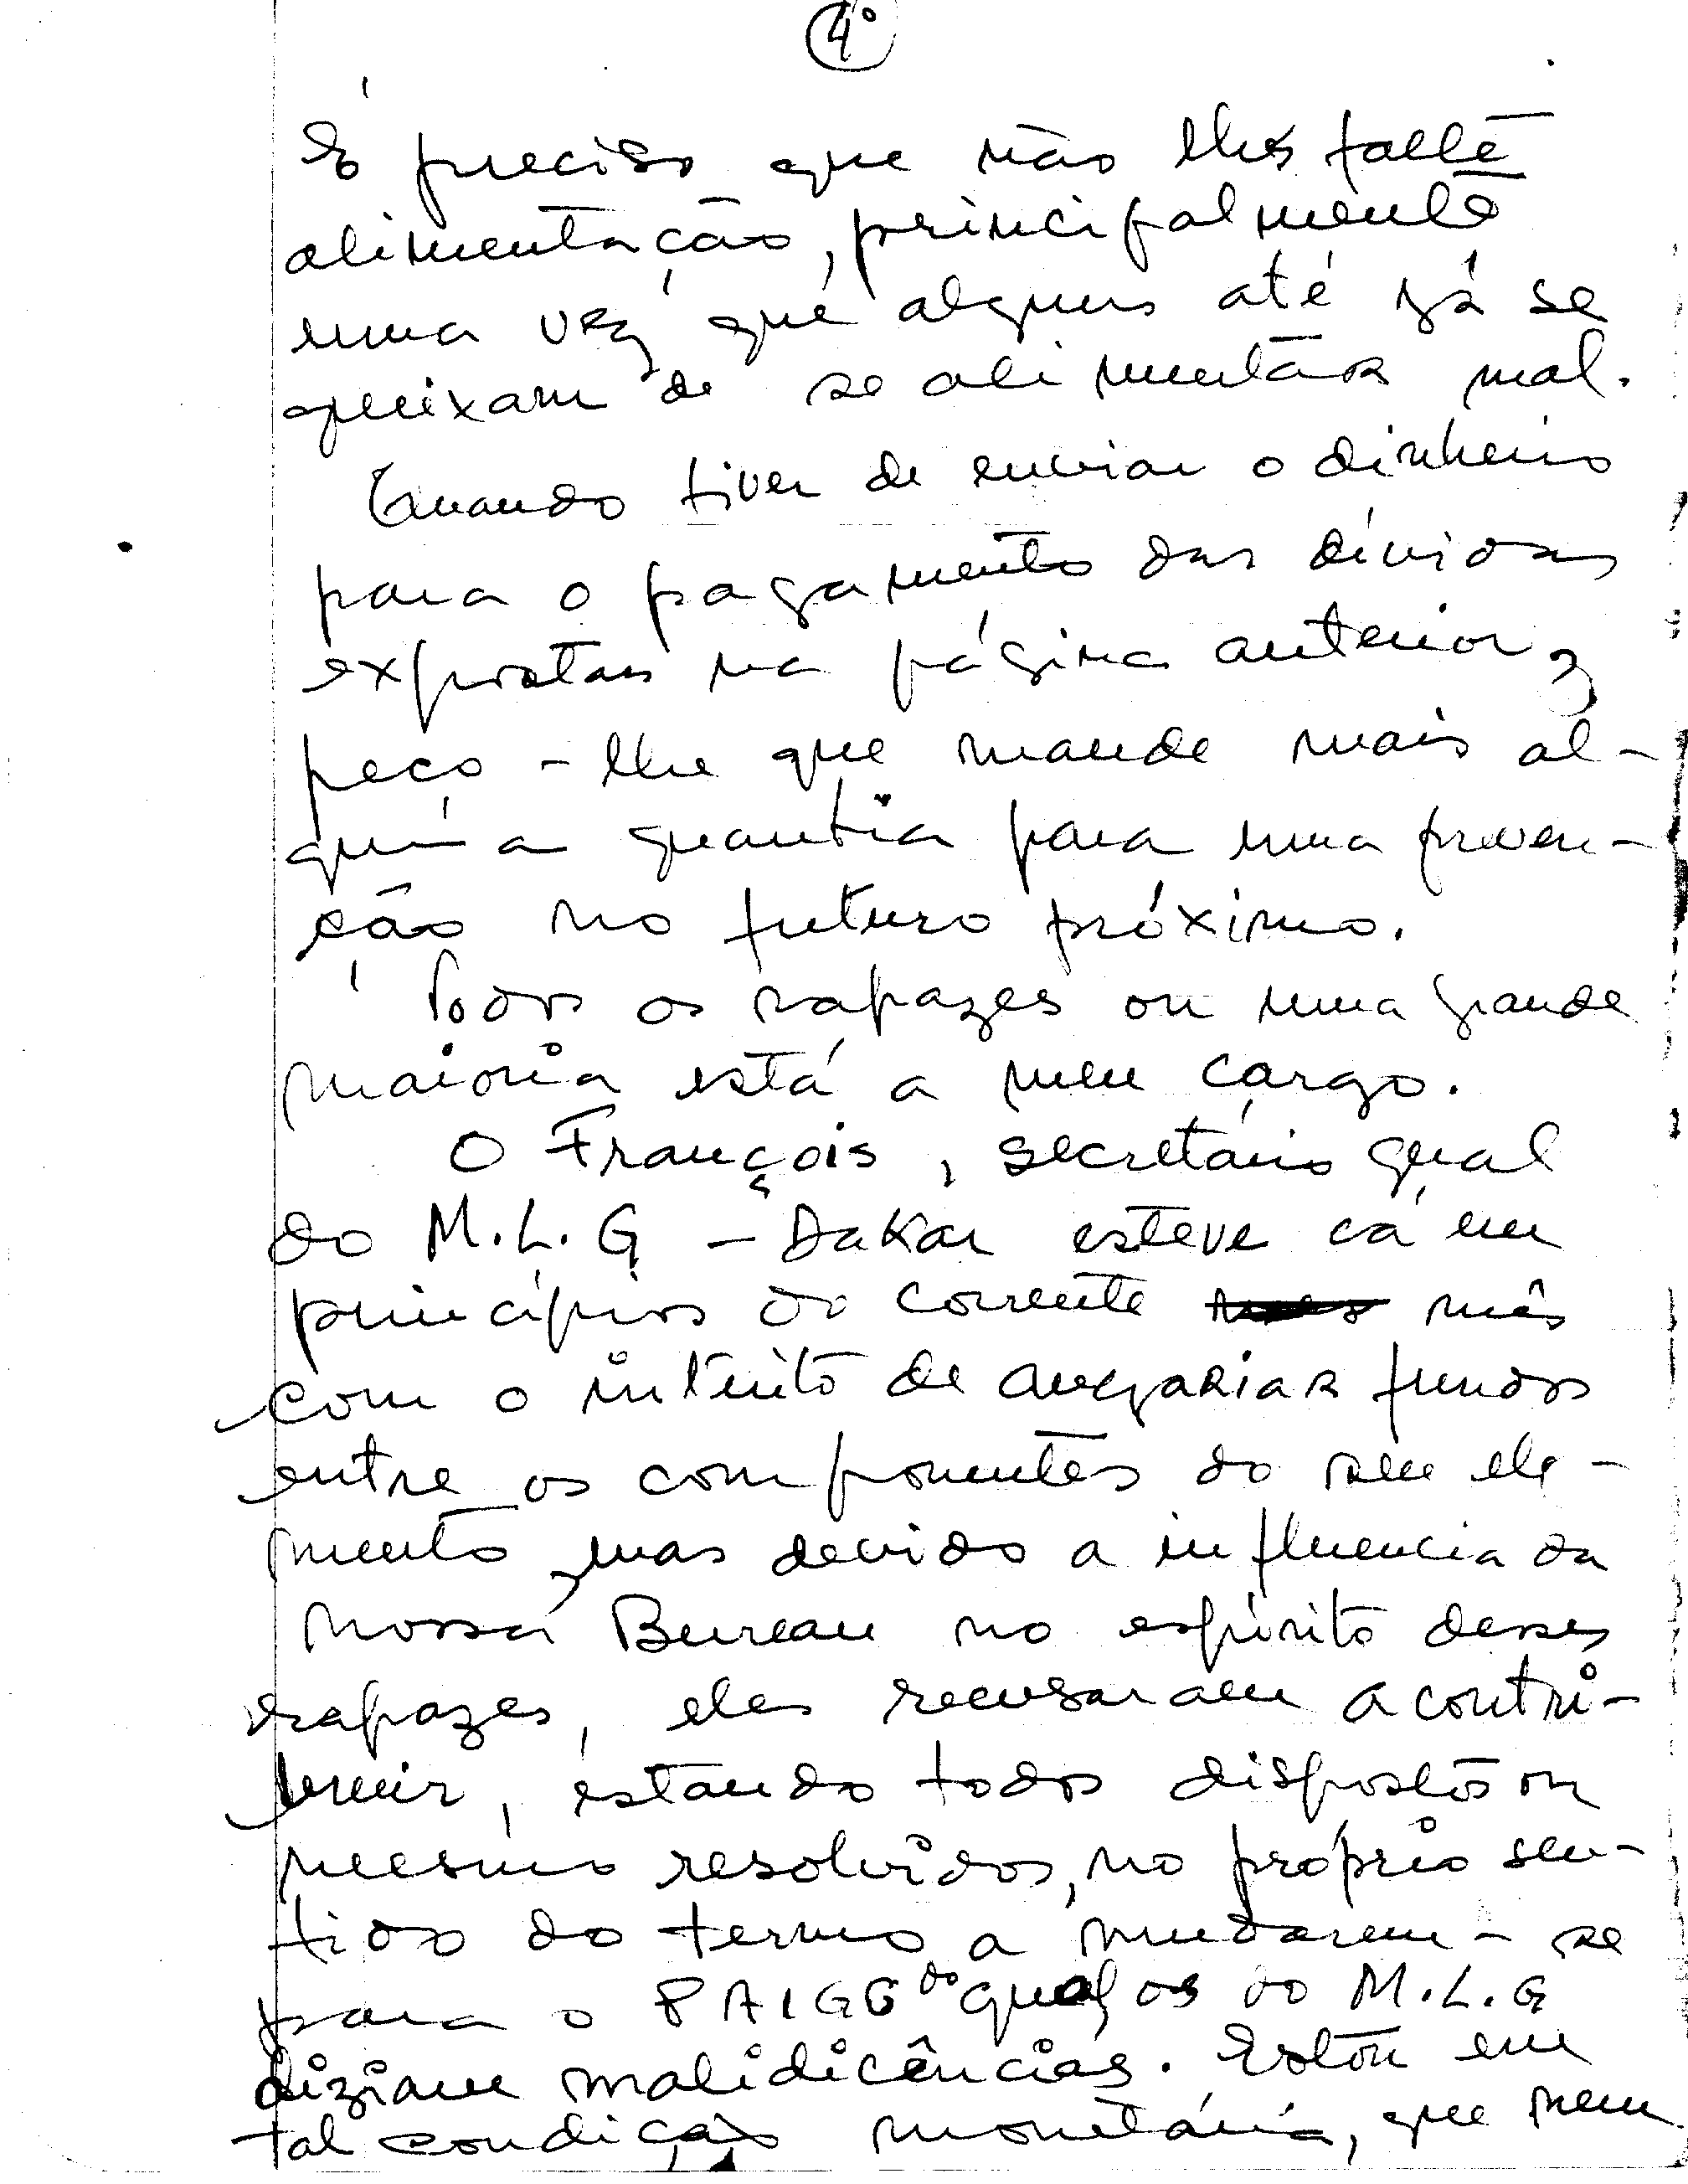 4º
É preciso que não lhes falte
alimentação, principalmente
uma vez que alguns até já se
queixam de se alimentar mal.
Quando tiver de enviar o dinheiro
para o pagamento das dívidas
expostas na página anterior,
peço-lhe que mande mais al-
guma quantia para uma preven-
ção no futuro próximo.
Todos os rapazes ou uma grande
maioria está a meu cargo.
O François, secretário geral
do M.L.G - Dakar esteve cá em
princípios do corrente mês
com o intuito de angariar fundos
entre os componentes do seu ele-
mento, mas devido a influencia da
nossa Bureau no espírito desses
rapazes, eles recusaram a contri-
buir, estando todos dispostos ou
mesmo resolvidos, no próprio sen-
tido do termo a mudarem-se
para o PAIGC do qual os do M.L.G
diziam malidicências. Estou em
tal condição monetária, que nem